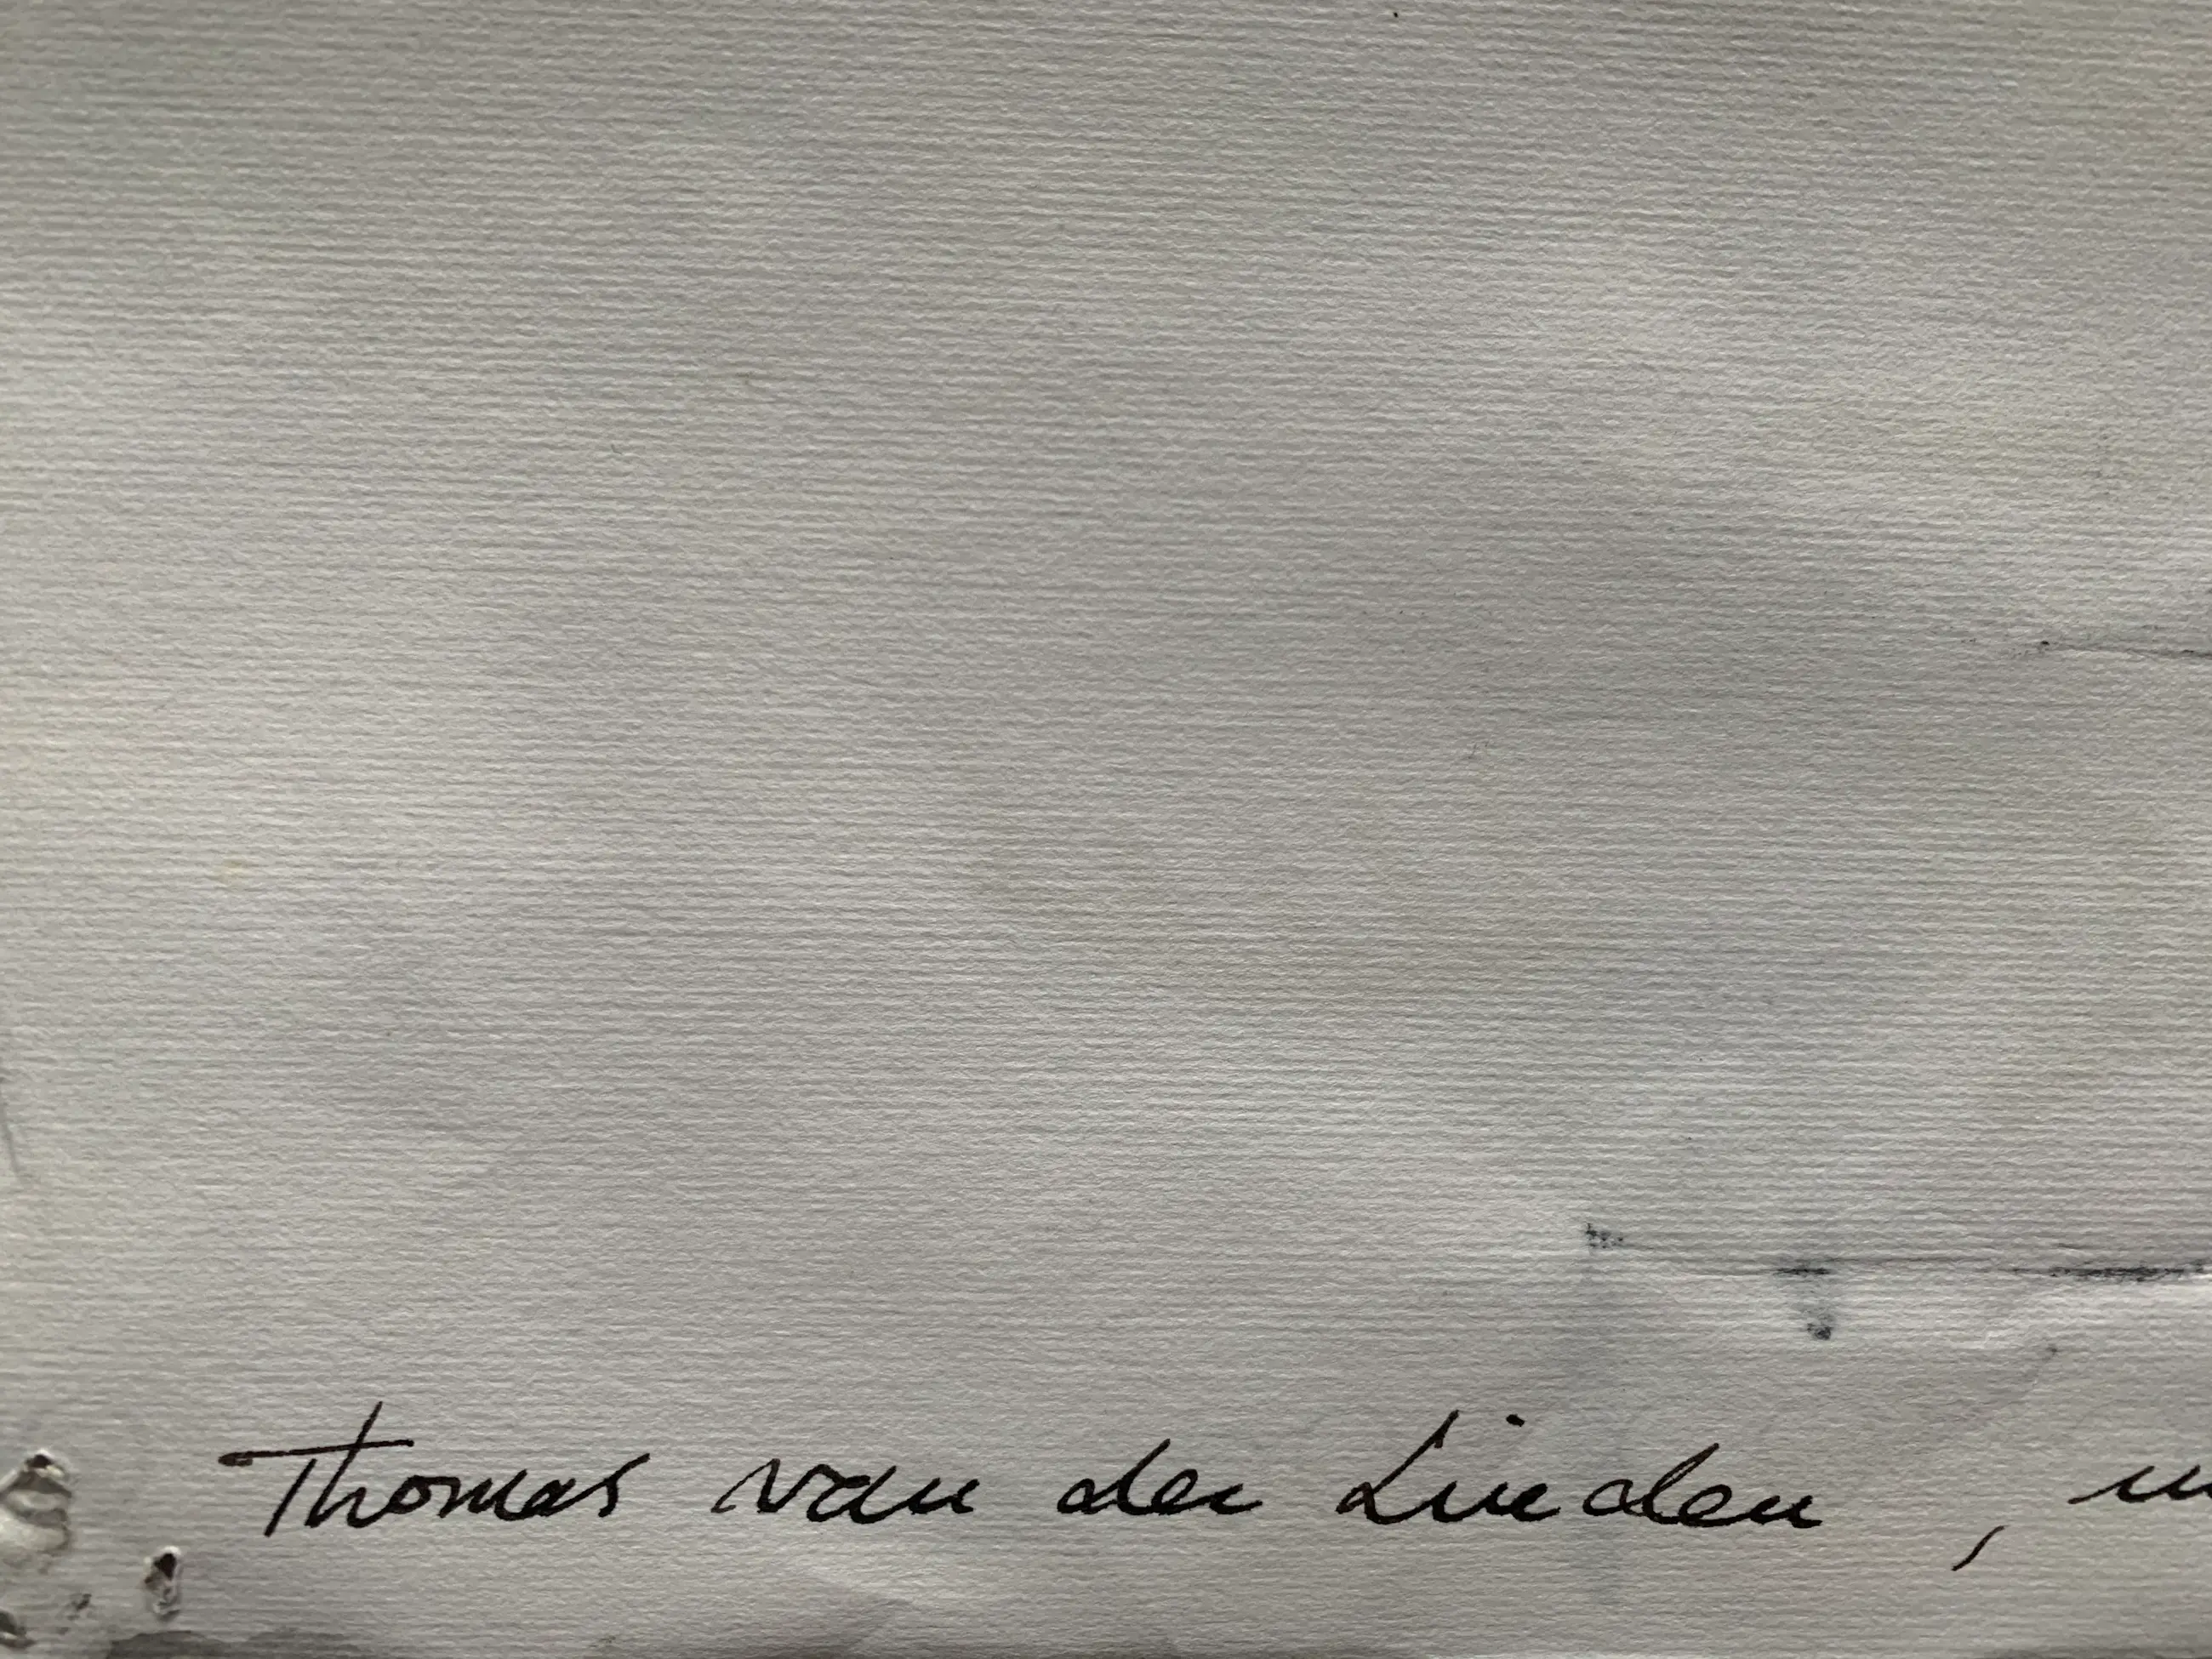 Thomas van der Linden,